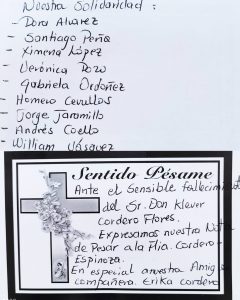 Nuestra Solidaridad :
- Dora Alvarez
- Santiago Peña
- Ximena López
- Verónica Pozo
- Gabriela Ordoñez
- Homero Cevallos
- Jorge Jaramillo
- Andrés Coello
- William Vásquez
Sentido Pésame
Ante el Sensible fallecimiento
del Sr. Don Klever
Cordero Flores.
Expresamos nuestra Nota
de Pesar a la Flia. Cordero-
Espinoza.
En especial a nuestra Amiga
Compañera. Erika Cordero